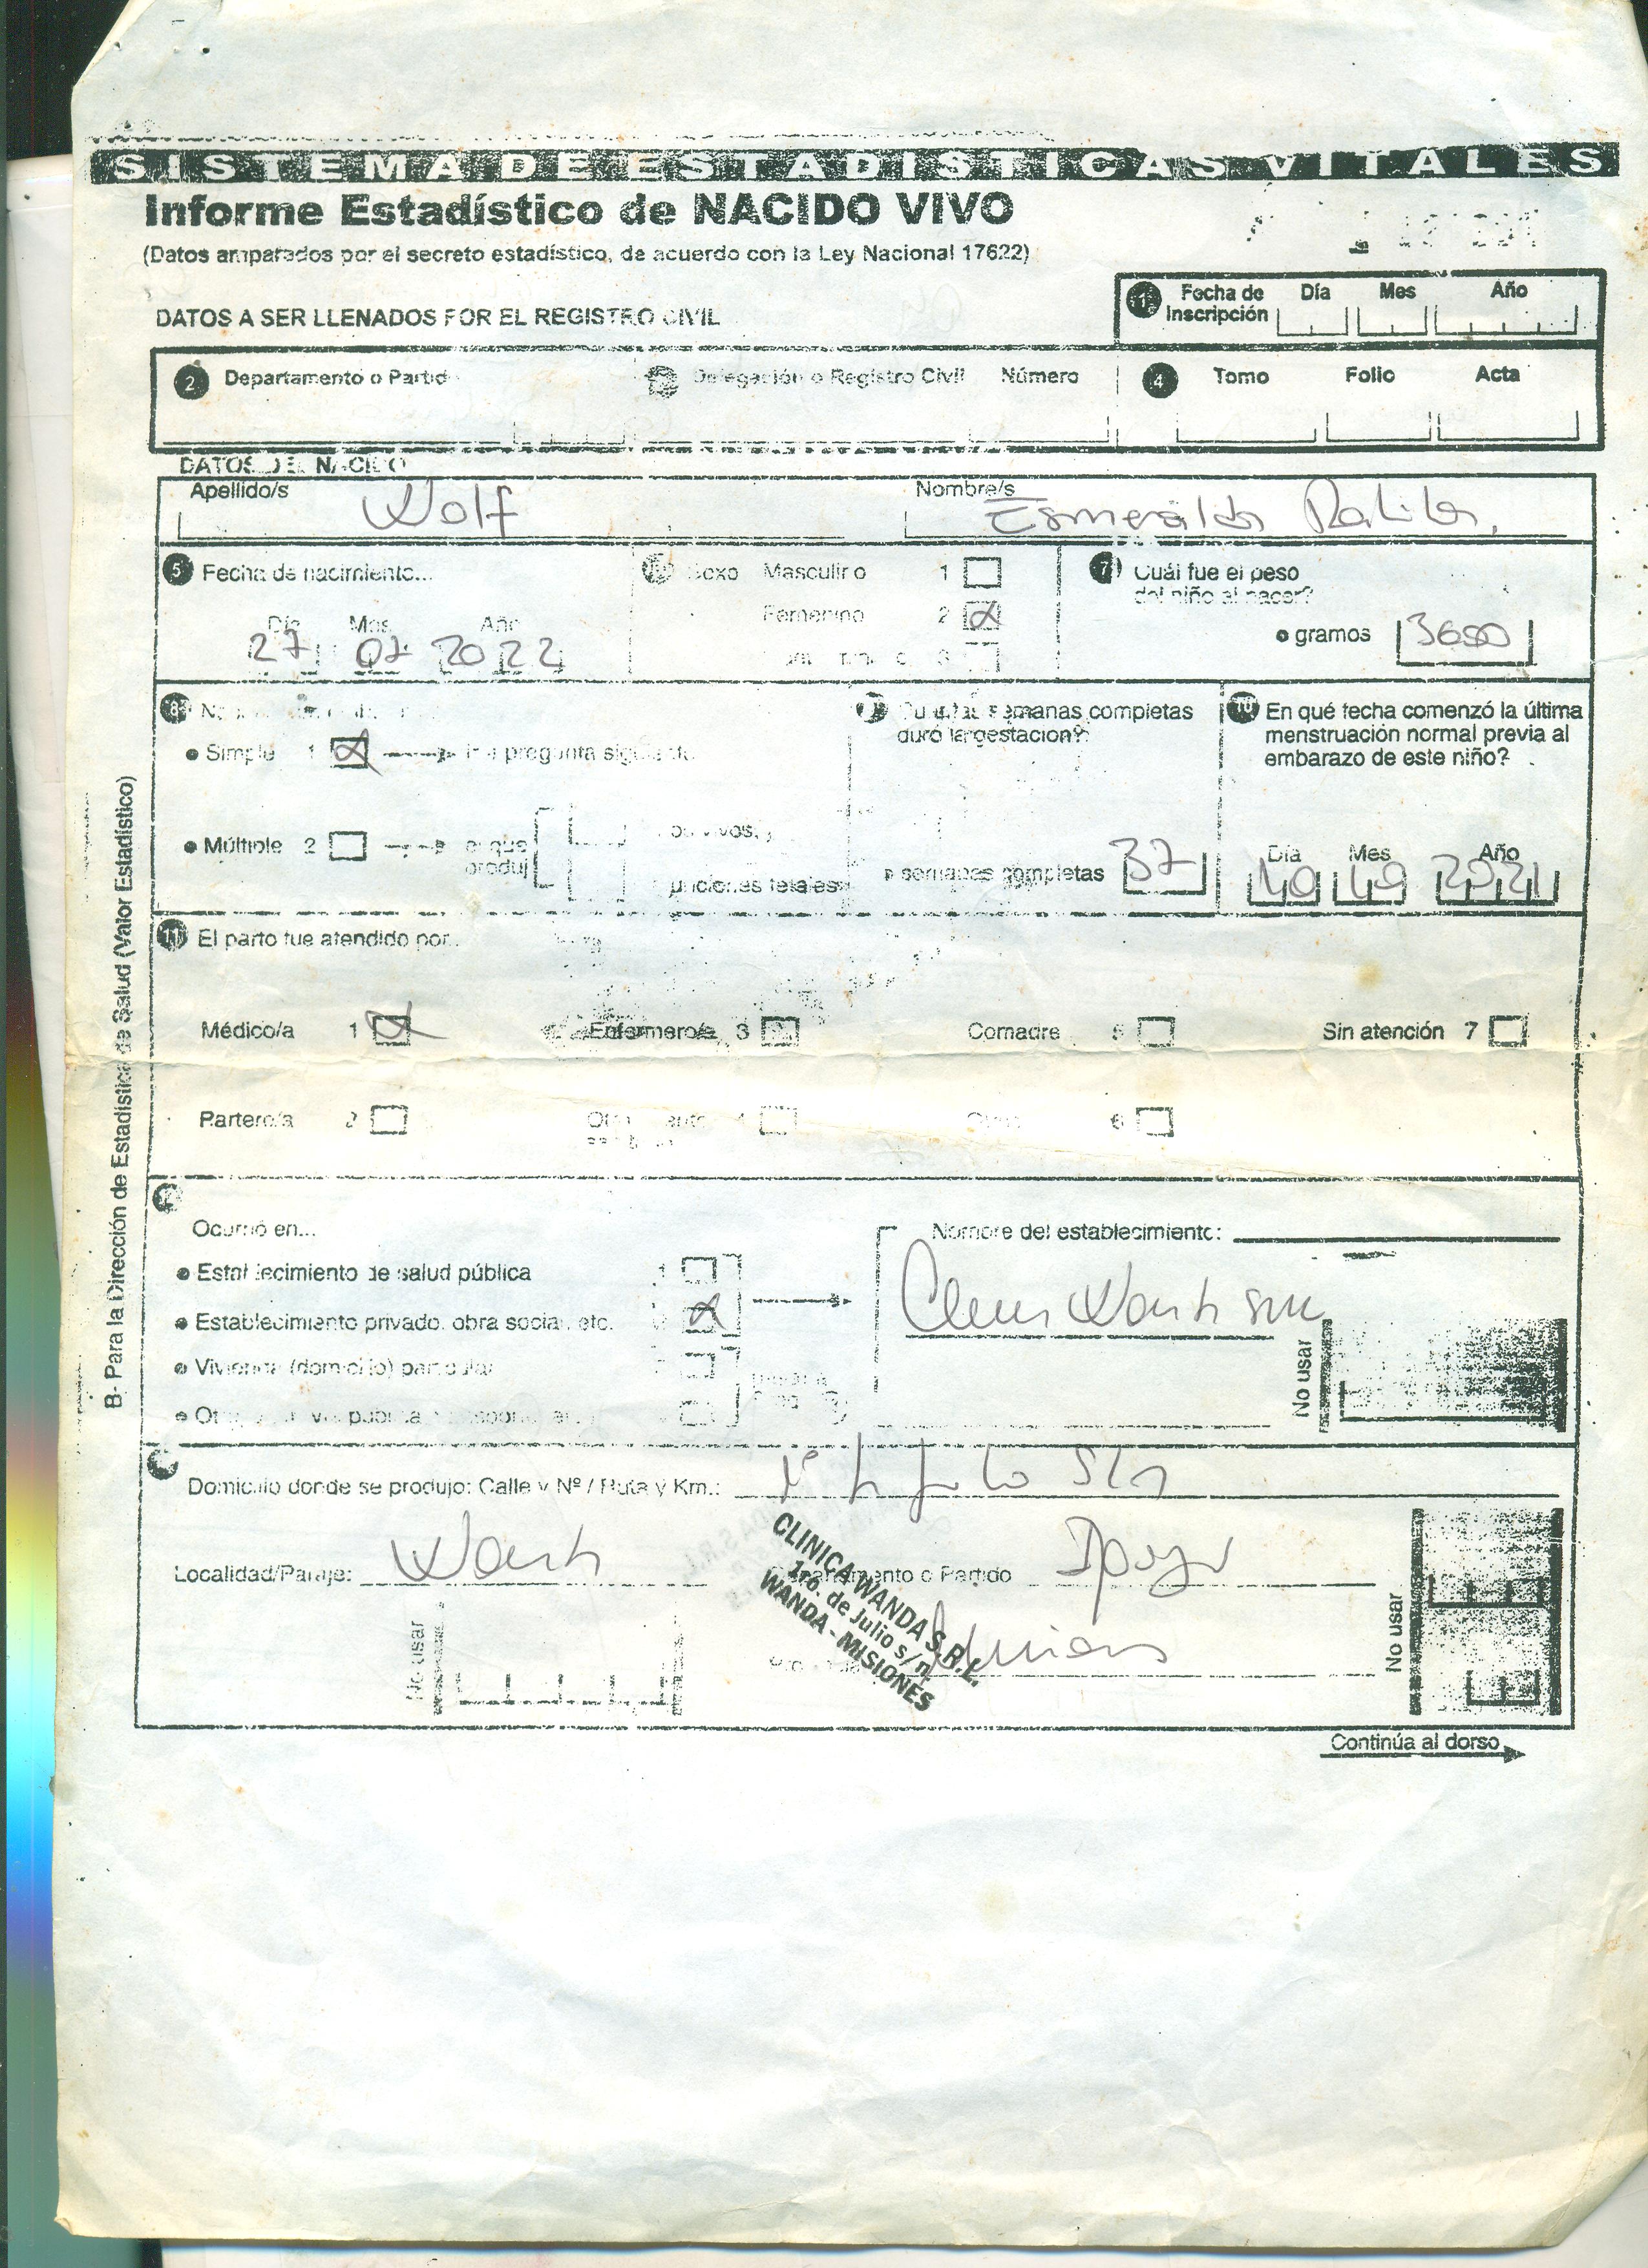 SISTEMA DE ESTADISTICAS VITALES
Informe Estadístico de NACIDO VIVO
(Datos amparados por el secreto estadístico, de acuerdo con la Ley Nacional 17622)
DATOS A SER LLENADOS POR EL REGISTRO CIVIL
1 Fecha de Inscripción Día Mes Año
2 Departamento o Partido Delegación o Registro Civil Número 4 Tomo Folio Acta
DATOS DEL NACIDO
Apellido/s Wolf Nombre/s Esmeralda
5 Fecha de nacimiento... Sexo Masculino 1 7 Cuál fue el peso
del niño al nacer?
Día Mes Año Femenino 2
27 07 2022 3 gramos 3650
8 9 Cuántas semanas completas 10 En qué fecha comenzó la última
duró la gestación? menstruación normal previa al
Simple 1 pregunta siguiente embarazo de este niño?
Múltiple 2 vivos, y
Día Mes Año
defunciones fetales semanas completas 37 2021
11 El parto fue atendido por...
Médico/a 1 Enfermero/a 3 Comadre 5 Sin atención 7
Partero/a 2 6
Ocurrió en... Nombre del establecimiento:
Establecimiento de salud pública 1
Establecimiento privado, obra social, etc.
Vivienda (domicilio) particular
No usar
Domicilio donde se produjo: Calle y Nº / Ruta y Km.:
Localidad/Paraje: Departamento o Partido
CLINICA WANDA S.R.L.
1ro. de Julio s/n
WANDA - MISIONES
No usar
No usar
Continúa al dorso
B- Para la Dirección de Estadística de Salud (Valor Estadístico)